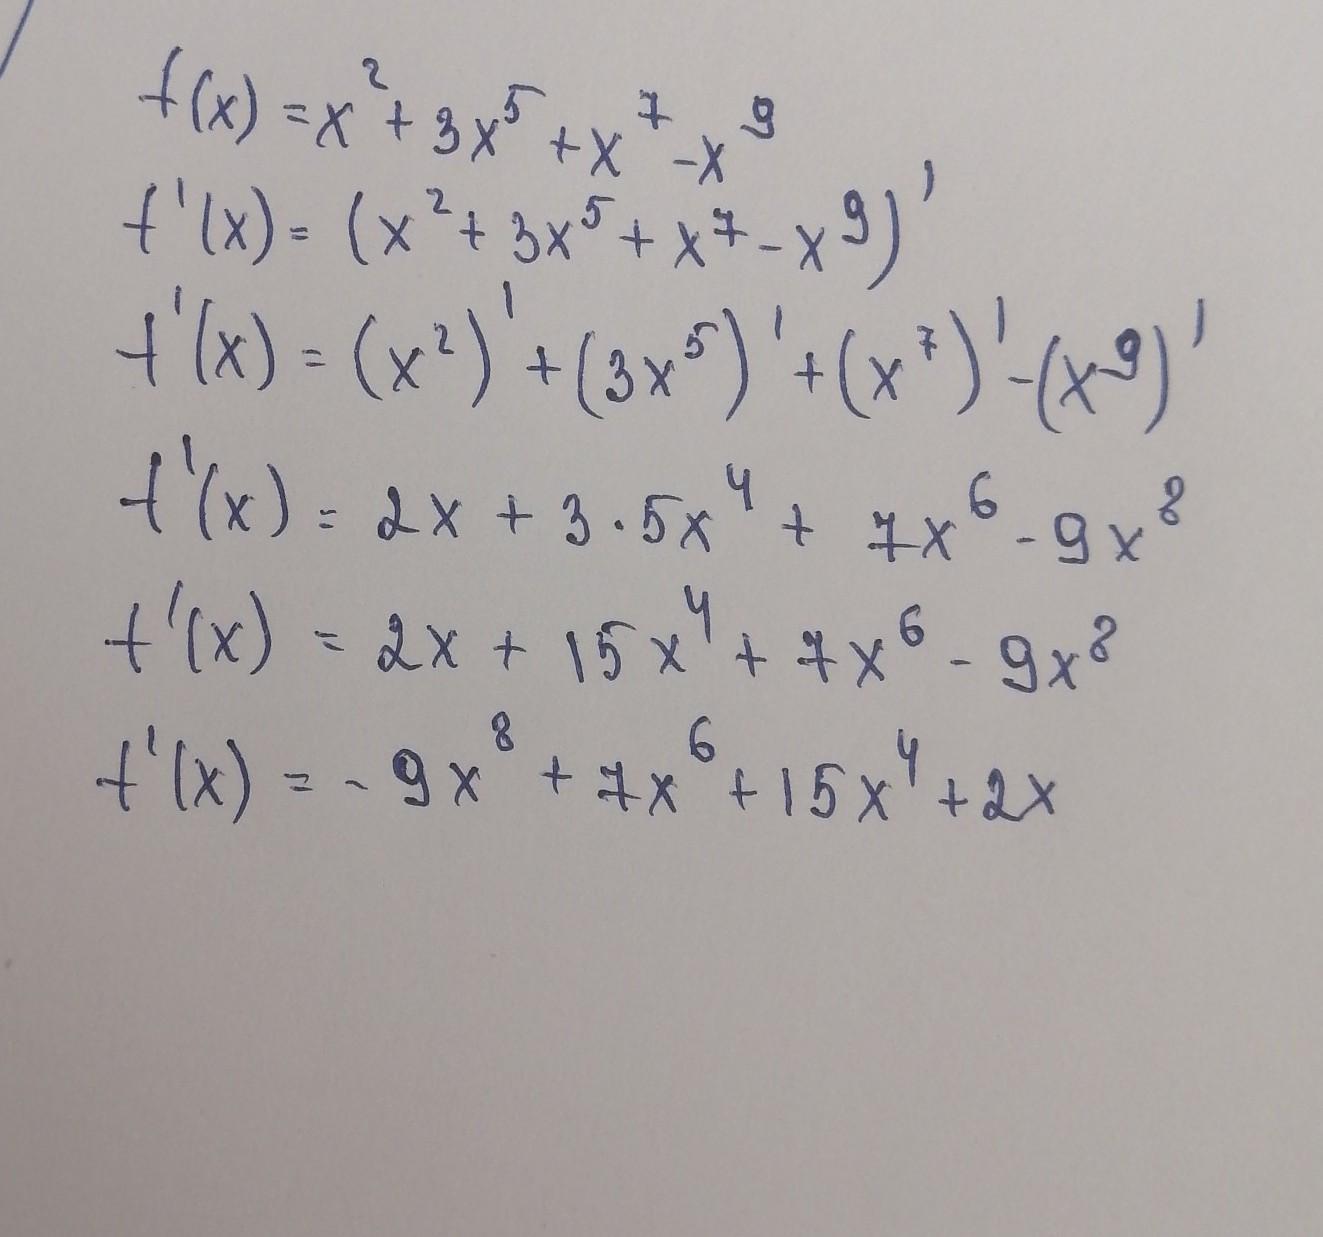 f(x) = x² + 3x⁵ + x⁷ - x⁹
f'(x) = (x² + 3x⁵ + x⁷ - x⁹)'
f'(x) = (x²)' + (3x⁵)' + (x⁷)' - (x⁹)'
f'(x) = 2x + 3·5x⁴ + 7x⁶ - 9x⁸
f'(x) = 2x + 15x⁴ + 7x⁶ - 9x⁸
f'(x) = -9x⁸ + 7x⁶ + 15x⁴ + 2x